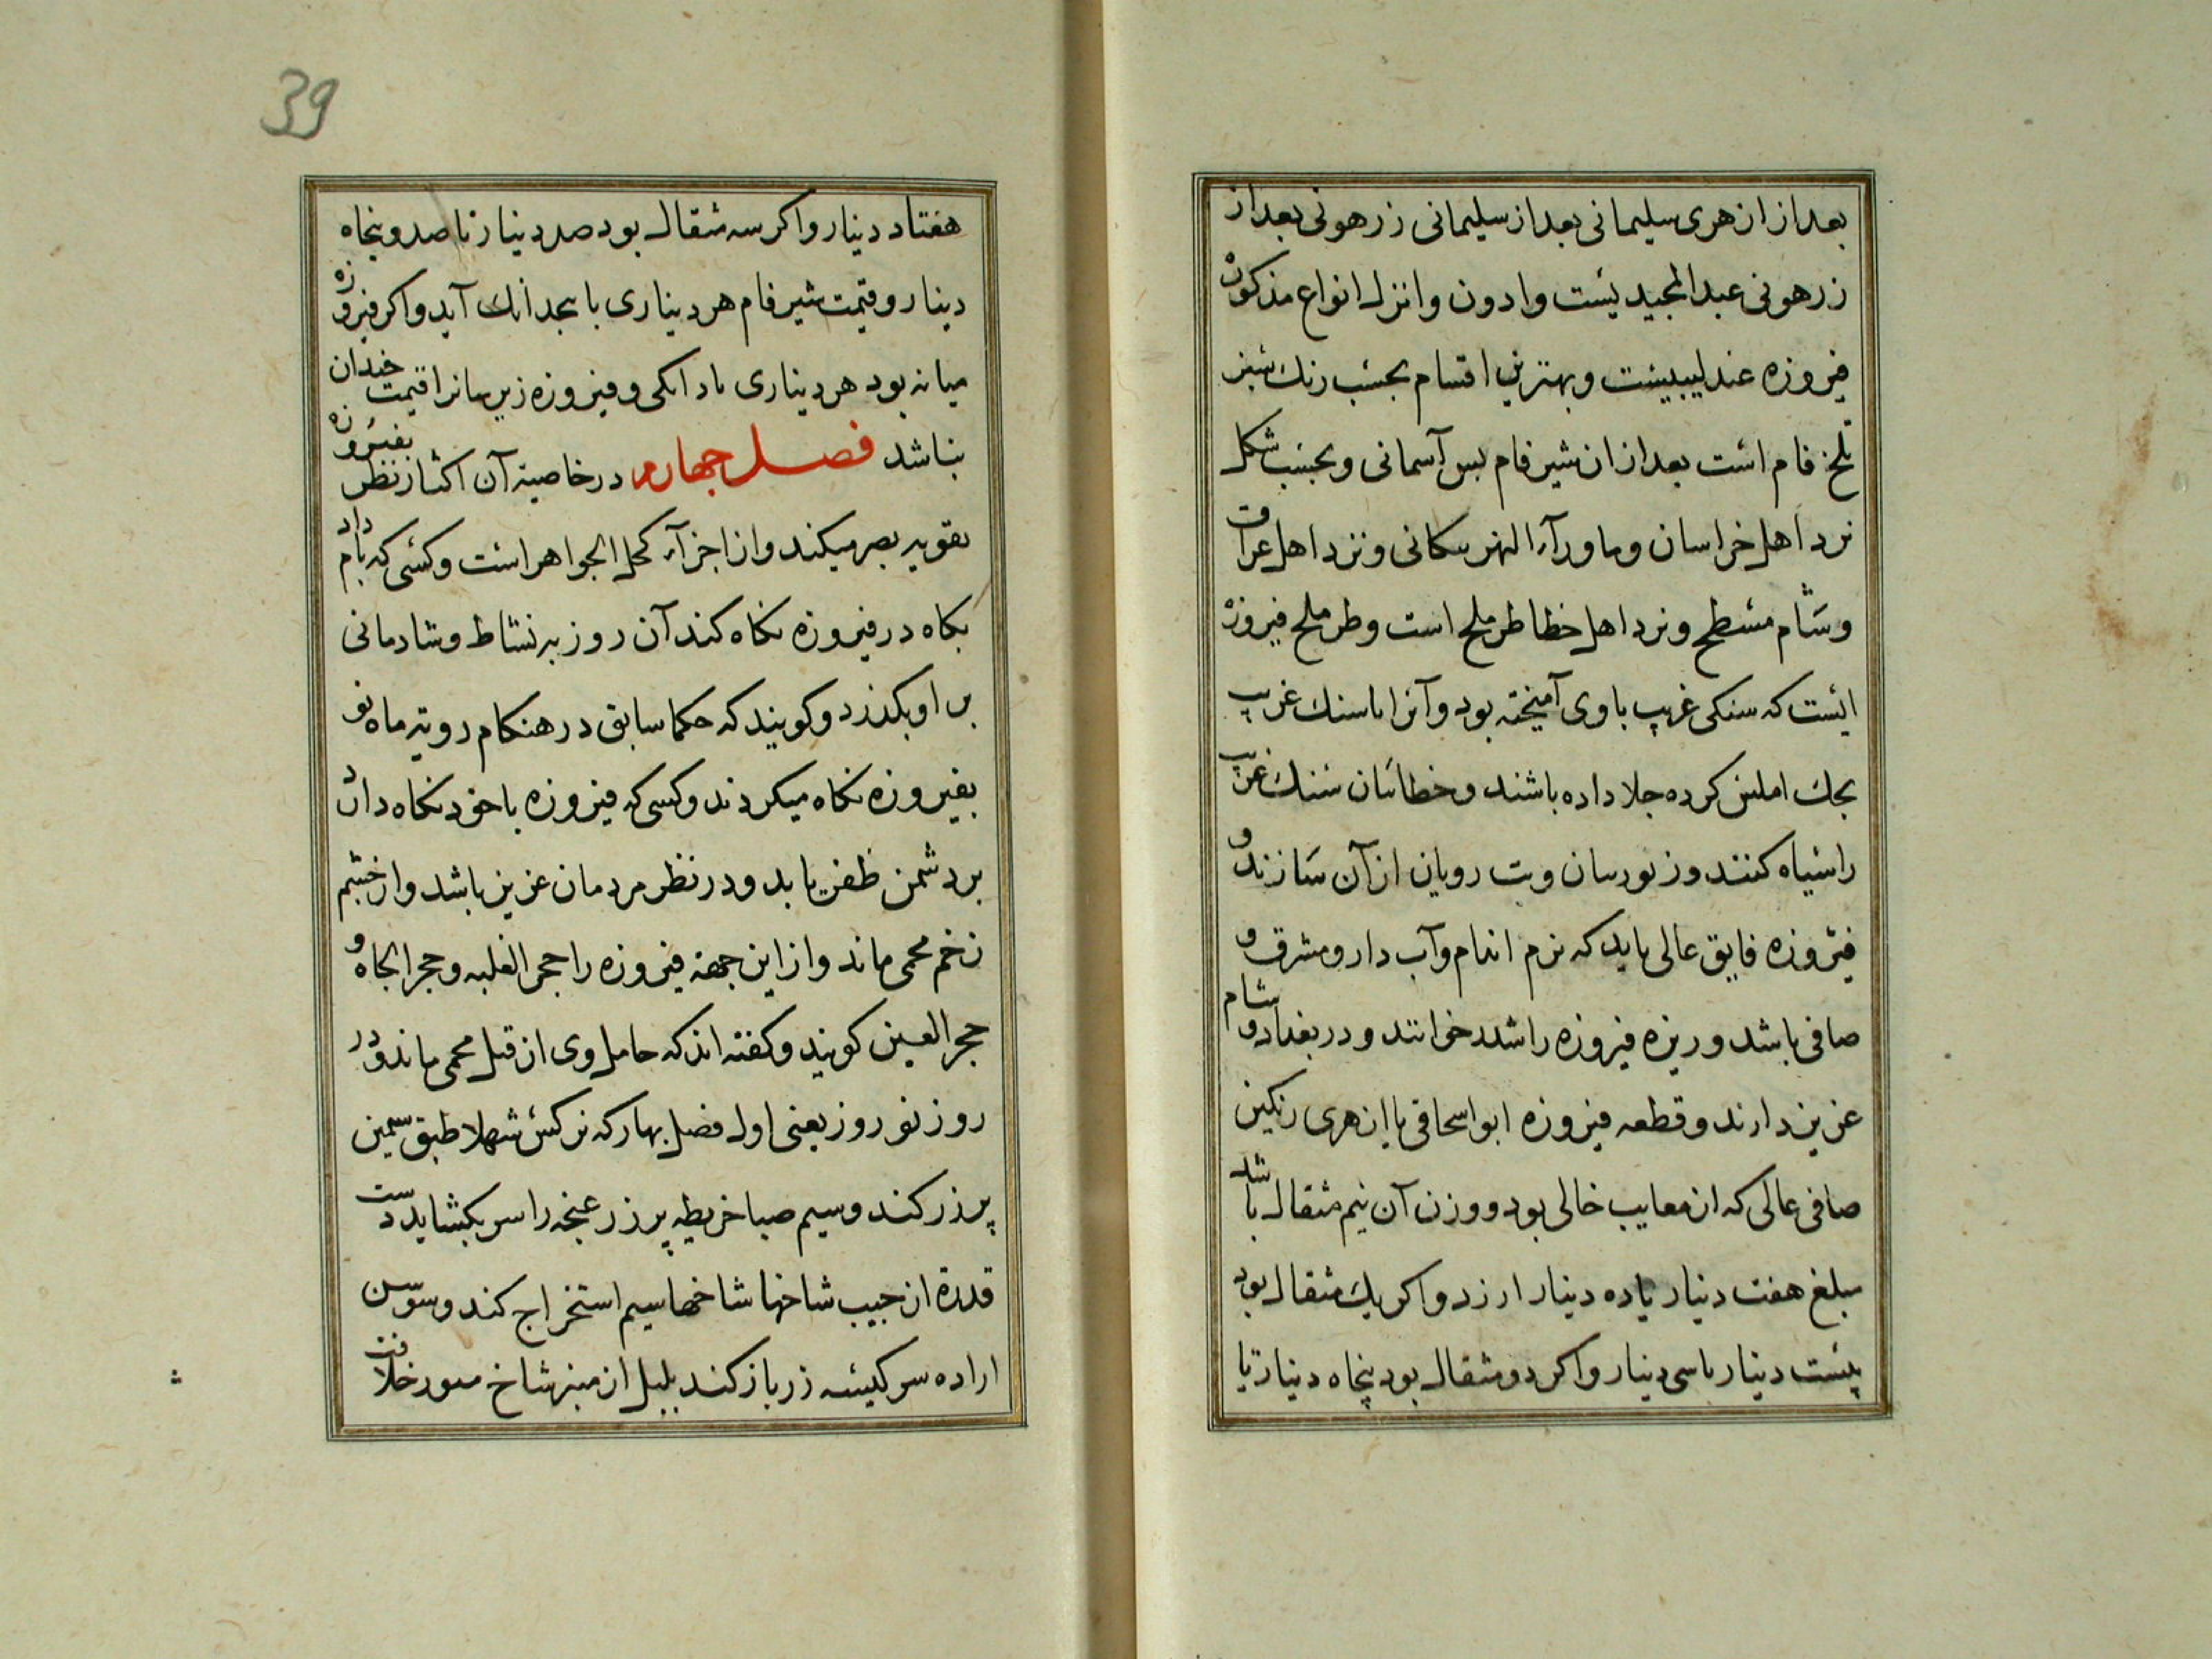 بعد از ازهری سلیمانی بعد از سلیمانی زرهونی بعد از
زرهونی عبد المجیدیست وادون وانزل انواع مذکوره
فیروزه عندلیبیست وبهترین اقسام بحسب رنک شیر
فام است بعد ازان شیرفام پس آسمانی وبحسب شکل
نزد اهل خراسان وماورآء النهر سکانی ونزد اهل عراق
وشام مسطح ونزد اهل خطا طرملح است وطرملح فیروزهٔ
ایست که سنکی غریب باوی آمیخته بود وآنرا باسنک غریب
بحک املس کرده جلا داده باشند وخطائیان سنک غریب
را سیاه کنند وزنورسان وبت رویان ازآن سازند و
فیروزه فایق عالی باید که نرم اندام وآب دار ومشرق و
صافی باشد وریزه فیروزه را شدد خوانند ودر بغداد وشام
عزیز دارند وقطعه فیروزه ابواسحاقی یا ازهری رنکین
صافی عالی که از معایب خالی بود ووزن آن نیم مثقال باشد
مبلغ هفت دینار یا ده دینار ارزد واکر یک مثقال بود
بیست دینار یا سی دینار واکر دو مثقال بود پنجاه دینار تا
39
هفتاد دینار واکر سه مثقال بود صد دینار تا صد وپنجاه
دینار وقیمت شیرفام هر دیناری با پنجدانک آید واکر فیروزه
میانه بود هر دیناری بادانکی وفیروزه زیرسانرا قیمت چندان
نباشد فصل چهارم در خاصیة آن اکثار نظر بفیروزه
تقویه بصر میکند واز اجزآء کحل الجواهر است وکسی که بامداد
بکاه در فیروزه نکاه کند آن روز به نشاط وشادمانی
بر او بکذرد وکویند که حکما سابق در هنکام رویة ماه نو
بفیروزه نکاه میکردند وکسی که فیروزه باخود نکاه دارد
بر دشمن ظفر یابد ودر نظر مردمان عزیز باشد واز چشم
زخم محمی ماند واز این جهة فیروزه را حجر الغلبه وحجر الجاه و
حجر العین کویند وکفته اند که حامل وی از قتل محمی ماند ودر
روز نوروز یعنی اول فصل بهار که نرکس شهلا طبق سیمین
پر زر کند ونسیم صبا خریطه پر زر غنچه را سر بکشاید دست
قدرة از جیب شاخها شاخها سیم استخراج کند وسوسن
اراده سر کیسه زر باز کند بلبل از منبر شاخ منور خلافت